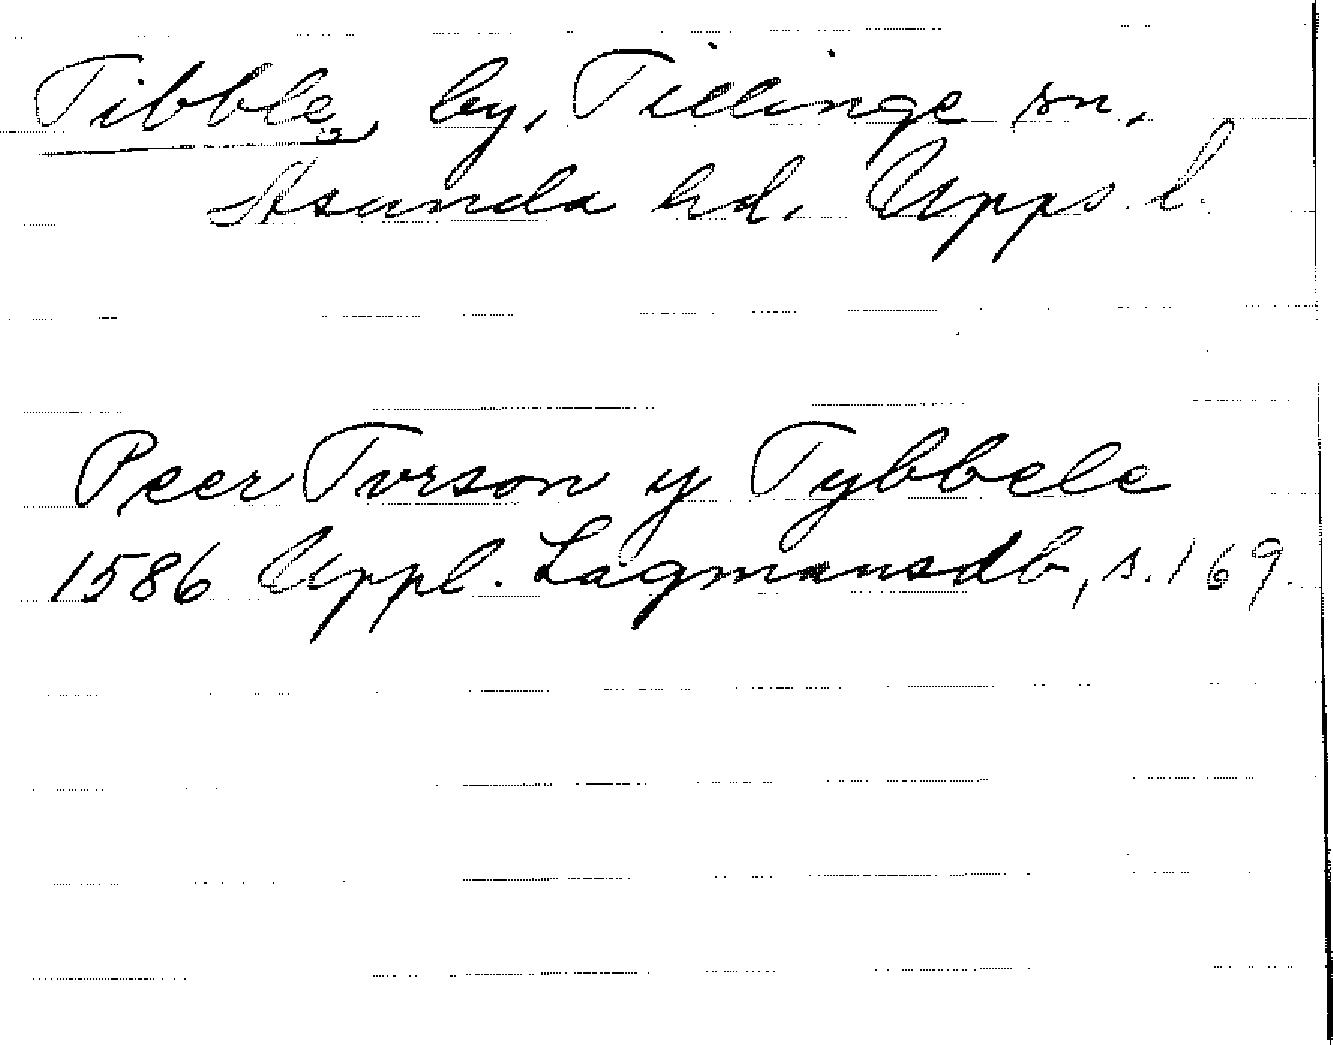 Tibble, by, Tillinge sn,
Åsunda hd. Upps. l.
Peer Turson y Tybbele
1586 Uppl. Lagmansdb, s. 169.